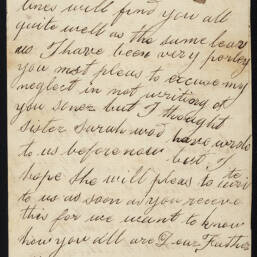 lines will find you all
quite well as the same leav
us. I have been very porley
you most pleas to excuse my
neglect in not writing of
you soner but I thought
sister Sarah wod have wrote
to us before now but I
hope she will pleas to write
to us as soon as you receve
this for we want to know
how you all are Dear Father